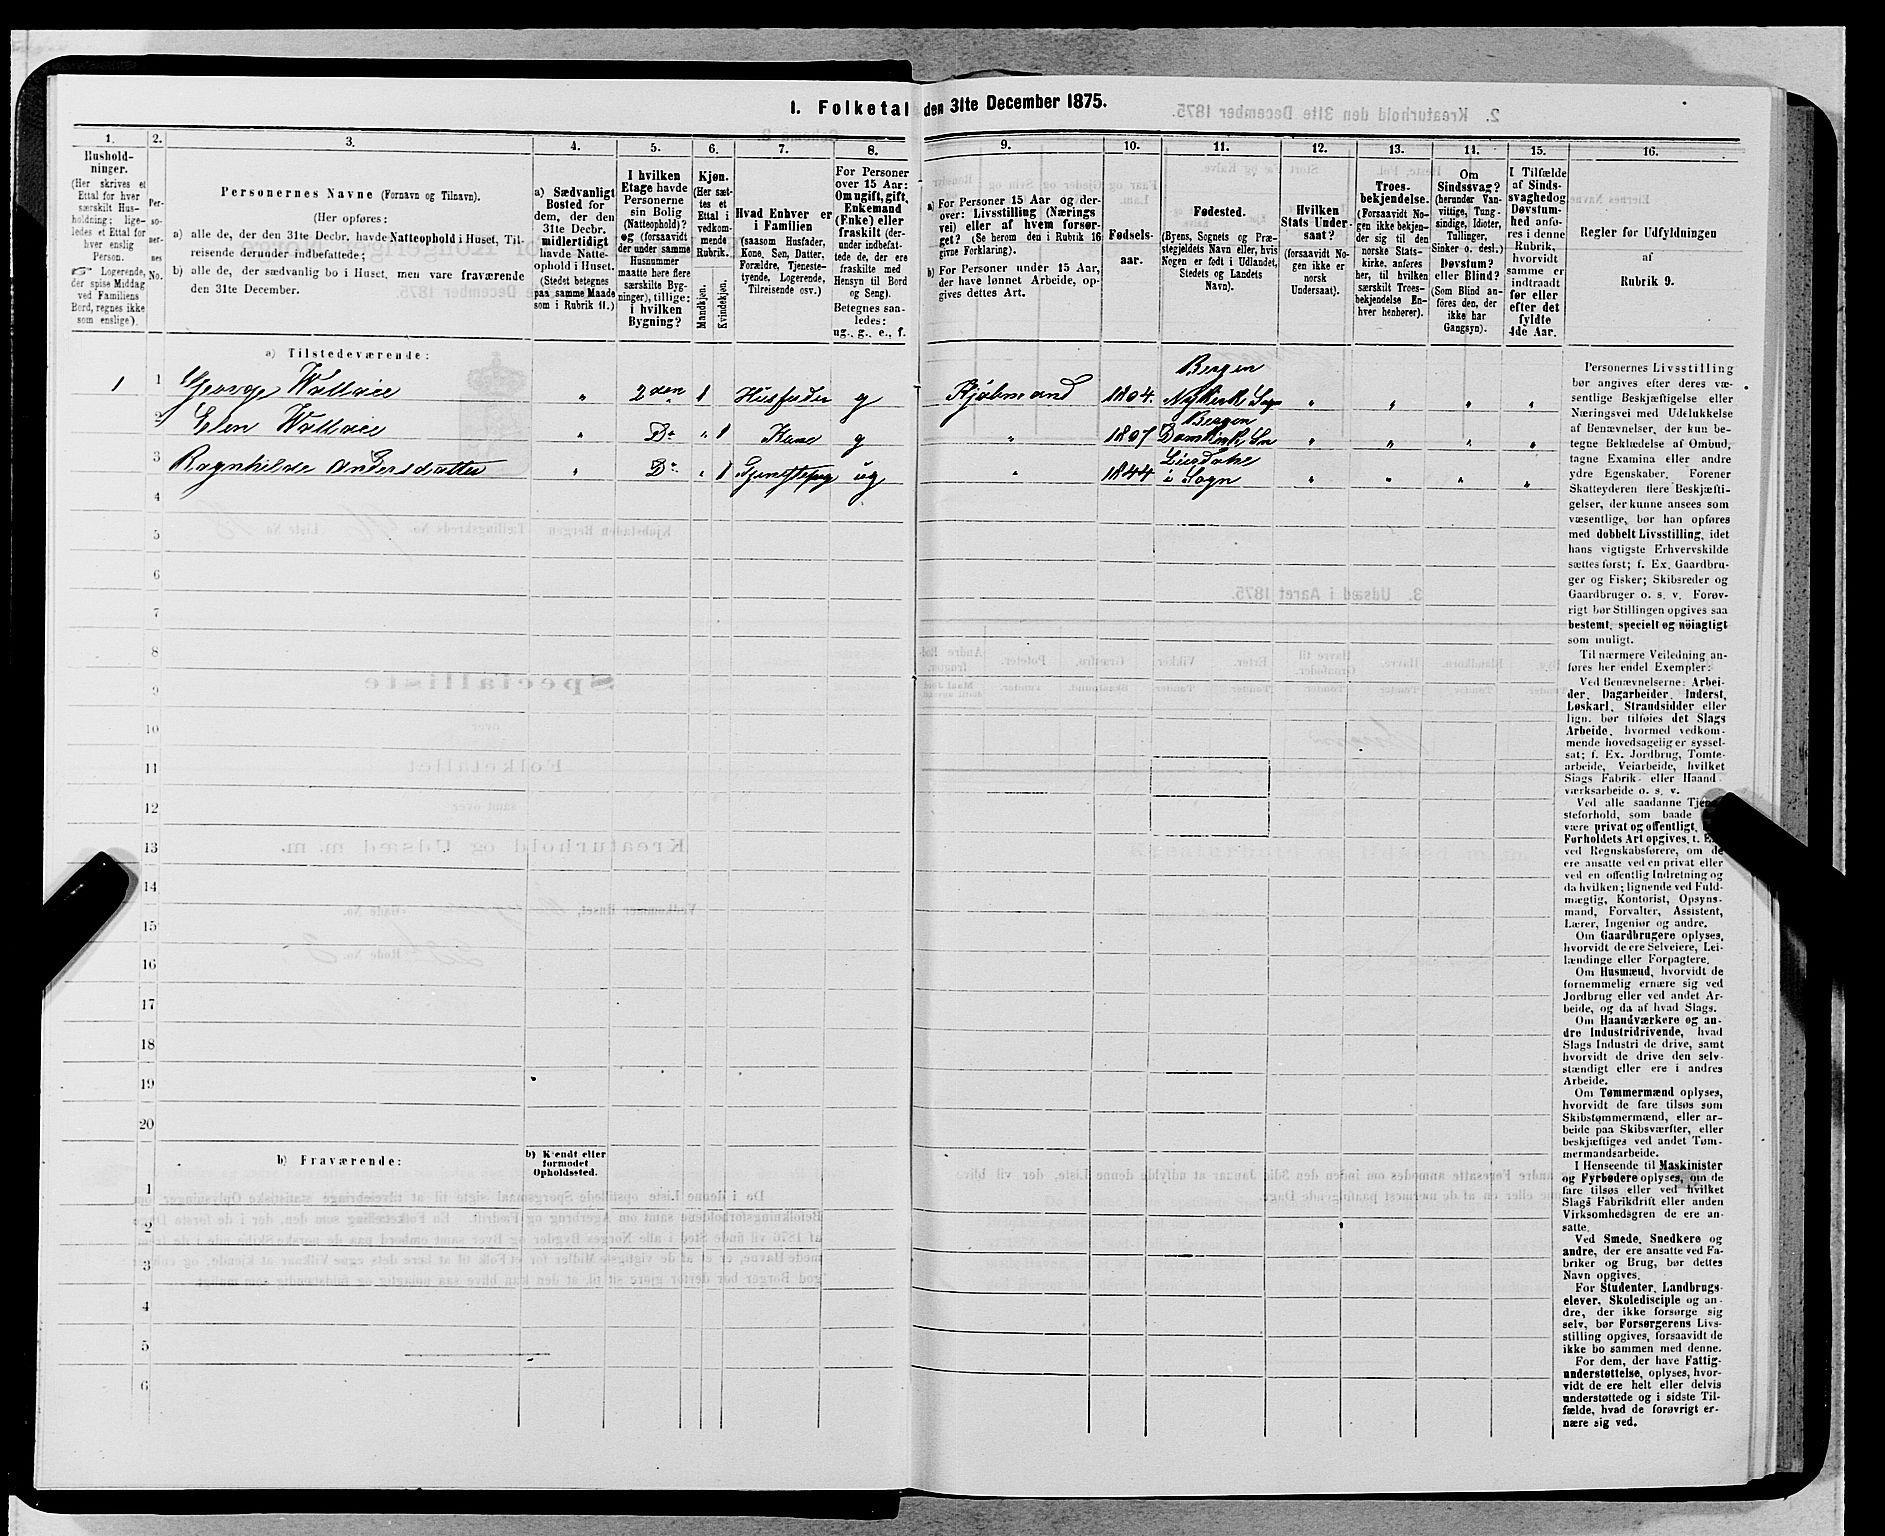 1. Folketal den 31te December 1875.
1. 2. 3. 4. 5. 6. 7. 8. 9. 10. 11. 12. 13. 14. 15. 16.
Hushold-
ninger.
(Her skrives et
Ettal for hver
særskilt Hus-
holdning; lige-
ledes et Ettal for
hver enslig
Person.
☞ Logerende,
der spise Middag
ved Familiens
Bord, regnes ikke
som enslige).
Per-
so-
ner-
nes
No.
Personernes Navne (Fornavn og Tilnavn).
(Her opføres:
a) alle de, der den 31te Decbr. havde Natteophold i Huset, Til-
reisende derunder indbefattede;
b) alle de, der sædvanlig bo i Huset, men vare fraværende
den 31te December.
a) Sædvanligt
Bosted for
dem, der den
31te Decbr.
midlertidigt
havde Natte-
ophold i Huset.
(Stedet betegnes
paa samme Maade
som i Rubrik 11.)
I hvilken
Etage havde
Personerne
sin Bolig
(Natteophold)?
og (forsaavidt
der under samme
Husnummer
maatte høre flere
særskilte Byg-
ninger), tillige:
i hvilken
Bygning?
Kjøn.
(Her sæt-
tes et
Ettal i
vedkom-
mende
Rubrik.
Mandkjøn.
Kvindekjøn.
Hvad Enhver er
i Familien
(saasom Husfader,
Kone, Søn, Datter,
Forældre, Tjeneste-
tyende, Logerende,
Tilreisende osv.)
For Personer
over 15 Aar:
Om ugift, gift,
Enkemand
(Enke) eller
fraskilt (der-
under indbefat-
tede de, der ere
fraskilte med
Hensyn til Bord
og Seng).
Betegnes saa-
ledes:
ug., g., e., f.
a) For Personer 15 Aar og der-
over: Livsstilling (Nærings
vei) eller af hvem forsør-
get? (Se herom den i Rubrik 16
givne Forklaring).
b) For Personer under 15 Aar,
der have lønnet Arbeide, op-
gives dettes Art.
Fødsels-
aar.
Fødested.
(Byens, Sognets og Præ-
stegjeldets Navn eller, hvis
Nogen er født i Udlandet,
Stedets og Landets
Navn).
Hvilken
Stats Under-
saat?
(forsaavidt No-
gen ikke er
norsk
Undersaat).
Troes-
bekjendelse.
(Forsaavidt No-
gen ikke bekjen-
der sig til den
norske Stats-
kirke, anføres
her, til hvilken
særskilt Troes-
bekjendelse En-
hver henhører).
Om
Sindssvag?
(herunder Van-
vittige, Tung-
sindige, Idioter,
Tullinger,
Sinker o. desl.)
Døvstum?
eller Blind?
(Som Blind an-
føres den, der
ikke har
Gangsyn).
I Tilfælde
af Sinds-
svaghed og
Døvstum-
hed anfø-
res i denne
Rubrik,
hvorvidt
samme er
indtraadt
før eller
efter det
fyldte
4de Aar.
Regler for Udfyldningen
af
Rubrik 9.
a) Tilstedeværende:
1 1 George Wallace " 2den 1 Husfader g Kjøbmand 1804. Bergen Nykirk Sogn " " " "
2 Elen Wallace " Do " 1 Kone g " 1807 Bergen Domkirk Sn " " " "
3 Ragnhilde Andersdatter " Do " 1 ug " 1844 i Sogn " " " "
4
5
6
7
8
9
10
11
12
13
14
15
16
17
18
19
20
b) Fraværende:
b) Kjendt eller
formodet
Opholdssted.
1
2
3
4
5
6
Personernes Livsstilling
bør angives efter deres væ-
sentlige Beskjæftigelse eller
Næringsvei med Udelukkelse
af Benævnelser, der kun be-
tegne Beklædelse af Ombud,
tagne Examina eller andre
ydre Egenskaber. Forener
Skatteyderen flere Beskjæfti-
gelser, der kunne ansees som
væsentlige, bør han opføres
med dobbelt Livsstilling, idet
hans vigtigste Erhvervskilde
sættes først; f. Ex. Gaardbru-
ger og Fisker; Skibsreder og
Gaardbruger o. s. v. Forøv-
rigt bør Stillingen opgives saa
bestemt, specielt og nöiagtigt
som muligt.
Til nærmere Veiledning an-
føres her endel Exempler:
Ved Benævnelserne: Arbei-
der, Dagarbeider, Inderst,
Løskarl, Strandsidder eller
lign. bør tilføies det Slags
Arbeide, hvormed vedkom-
mende hovedsagelig er syssel-
sat; f. Ex. Jordbrug, Tomte-
arbeide, Veiarbeide, hvilket
Slags Fabrik- eller Haand-
værksarbeide o. s. v.
Ved alle saadanne Tjene-
steforhold, som baade
være privat og offentlig,
Forholdets Art opgives, t. Ex.
ved Regnskabsførere, om de
ere ansatte ved en privat eller
ved en offentlig Indretning og
da hvilken; lignende ved Fuld-
mægtig, Kontorist, Opsyns-
mand, Forvalter, Assistent,
Lærer, Ingeniør og andre.
Om Gaardbrugere oplyses,
hvorvidt de ere Selveiere, Lei-
lændinge eller Forpagtere.
Om Husmænd, hvorvidt de
fornemmelig ernære sig ved
Jordbrug eller ved andet Ar-
beide, og da af hvad Slags.
Om Haandværkere og an-
dre Industridrivende, hvad
Slags Industri de drive, samt
hvorvidt de drive den selv-
stændigt eller ere i andres
Arbeide.
Om Tømmermænd oplyses,
hvorvidt de fare tilsøs som
Skibstømmermænd, eller ar-
beide paa Skibsværfter, eller
beskjæftiges ved andet Tøm-
mermandsarbeide.
I Henseende til Maskinister
og Fyrbødere oplyses, om de
fare tilsøs eller ved hvilket
Slags Fabrikdrift eller anden
Virksomhedsgren de ere an-
satte.
Ved Smede, Snedkere og
andre, der ere ansatte ved Fa-
briker og Brug, bør dettes
Navn opgives.
For Studenter, Landbrugs-
elever, Skoledisciple og an-
dre, der ikke forsørge sig
selv, bør Forsørgerens Livs-
stilling opgives, forsaavidt de
ikke bo sammen med denne.
For dem, der have Fattig-
understøttelse, oplyses, hvor-
vidt de ere helt eller delvis
understøttede og i sidste Til-
fælde, hvad de forøvrigt er-
nære sig ved.